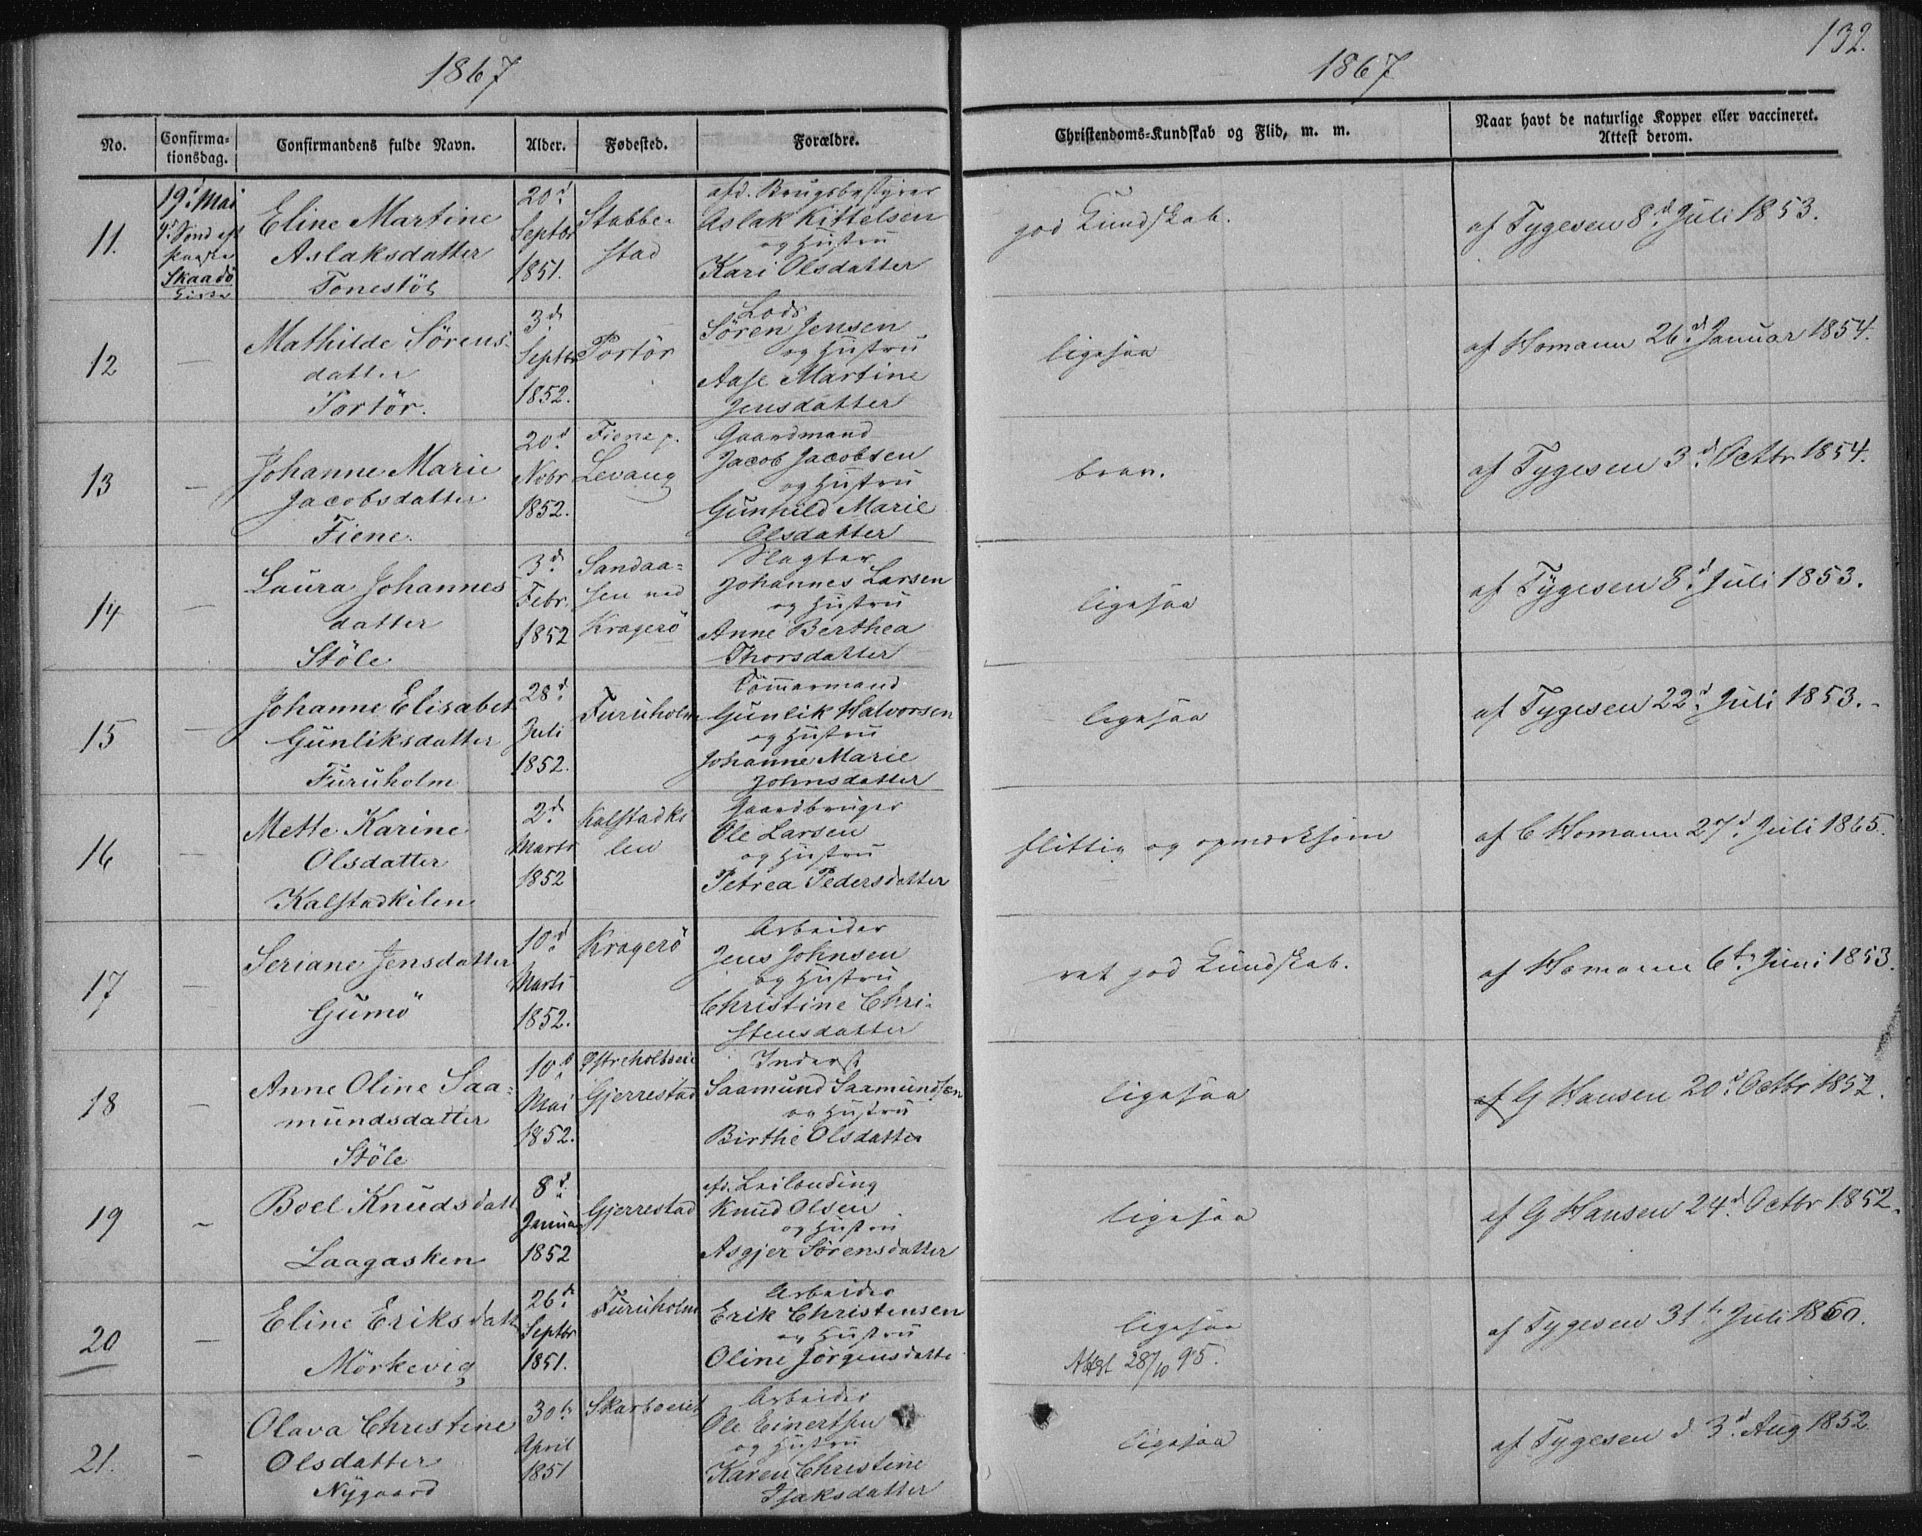 1867
1867
132.
No.
Confirma-
tionsdag.
Confirmandens fulde Navn.
Alder.
Fødested.
Forældre.
Christendoms-Kundskab og Flid, m. m.
Naar havt de naturlige Kopper eller vaccineret.
Attest derom.
11.
19. Mai
Skaadö
Eline Martine
Aslaksdatter
Tonestöl
20d
Septbr
1851.
Stabbe-
stad
afd. Brugsbestyrer
Aslak Kittelsen
og Hustru
Kari Olsdatter
god Kundskab.
af Tygesen 8d Juli 1853.
12
—
Mathilde Sörens-
datter
Portör.
3d
Septbr
1852.
Portör
Lods
Sören Jensen
og Hustru
Aase Martine
Jensdatter
ligesaa
af Homann 26d Januar 1854.
13
—
Johanne Marie
Jacobsdatter
Fiene.
20d
Nobr
1852.
Fiene p.
Levang
Gaardmand
Jacob Jacobsen
og Hustru
Gunhild Marie
Olsdatter
brav.
af Tygesen 3d Octbr 1854.
14
—
Laura Johannes
datter
Stöle
3d
Febr.
1852
Sandaa-
sen ved
Kragerö
Slagter
Johannes Larsen
og Hustru
Anne Berthea
Thorsdatter
ligesaa
af Tygesen 8d Juli 1853.
15
—
Johanne Elisabet
Gunliksdatter
Furuholm
28d
Juli
1852.
Furuholm
Tömmermand
Gunlik Halvorsen
og Hustru
Johanne Marie
Johnsdatter
ligesaa
af Tygesen 22d Juli 1853.
16
—
Mette Karine
Olsdatter
Kalstadkilen
2d
Marts
1852
Kalstadki
len
Gaardbruger
Ole Larsen
og Hustru
Petrea Pedersdatter
flittig og opmærksom
af C Homann 27d Juli 1865.
17
—
Seriane Jensdatter
Gumö
10d
Marts
1852.
Kragerö
Arbeider
Jens Johnsen
og Hustru
Christine Chri-
stensdatter
ret god Kundskab.
af Homann 6t Juni 1853.
18
—
Anne Oline Saa-
mundsdatter
Stöle
10d
Mai
1852.
Østreholtseie
Gjerrestad
Inderst
Saamund Saamundsen
og Hustru
Birthe Olsdatter
ligesaa
af G Hansen 20d Octbr 1852.
19
—
Boel Knudsdatt
Laagasken
8d
Januar
1852
Gjerrestad
afd. Leilending
Knud Olsen
og Hustru
Asgjer Sörensdatter
ligesaa
af G Hansen 24d Octbr 1852.
20
—
Eline Eriksdatt
Mörkevig
26d
Septbr
1851.
Furuholm
Arbeider
Erik Christensen
og Hustru
Oline Jörgensdatte
ligesaa
Attst 28/10 95.
af Tygesen 31t Juli 1860.
21.
—
Olava Christine
Olsdatter
Nygaard
30t
April
1851
Skarboeiet
Arbeider
Ole Einertsen
og Hustru
Karen Christine
Isaksdatter
ligesaa
af Tygesen d 3d Aug 1852